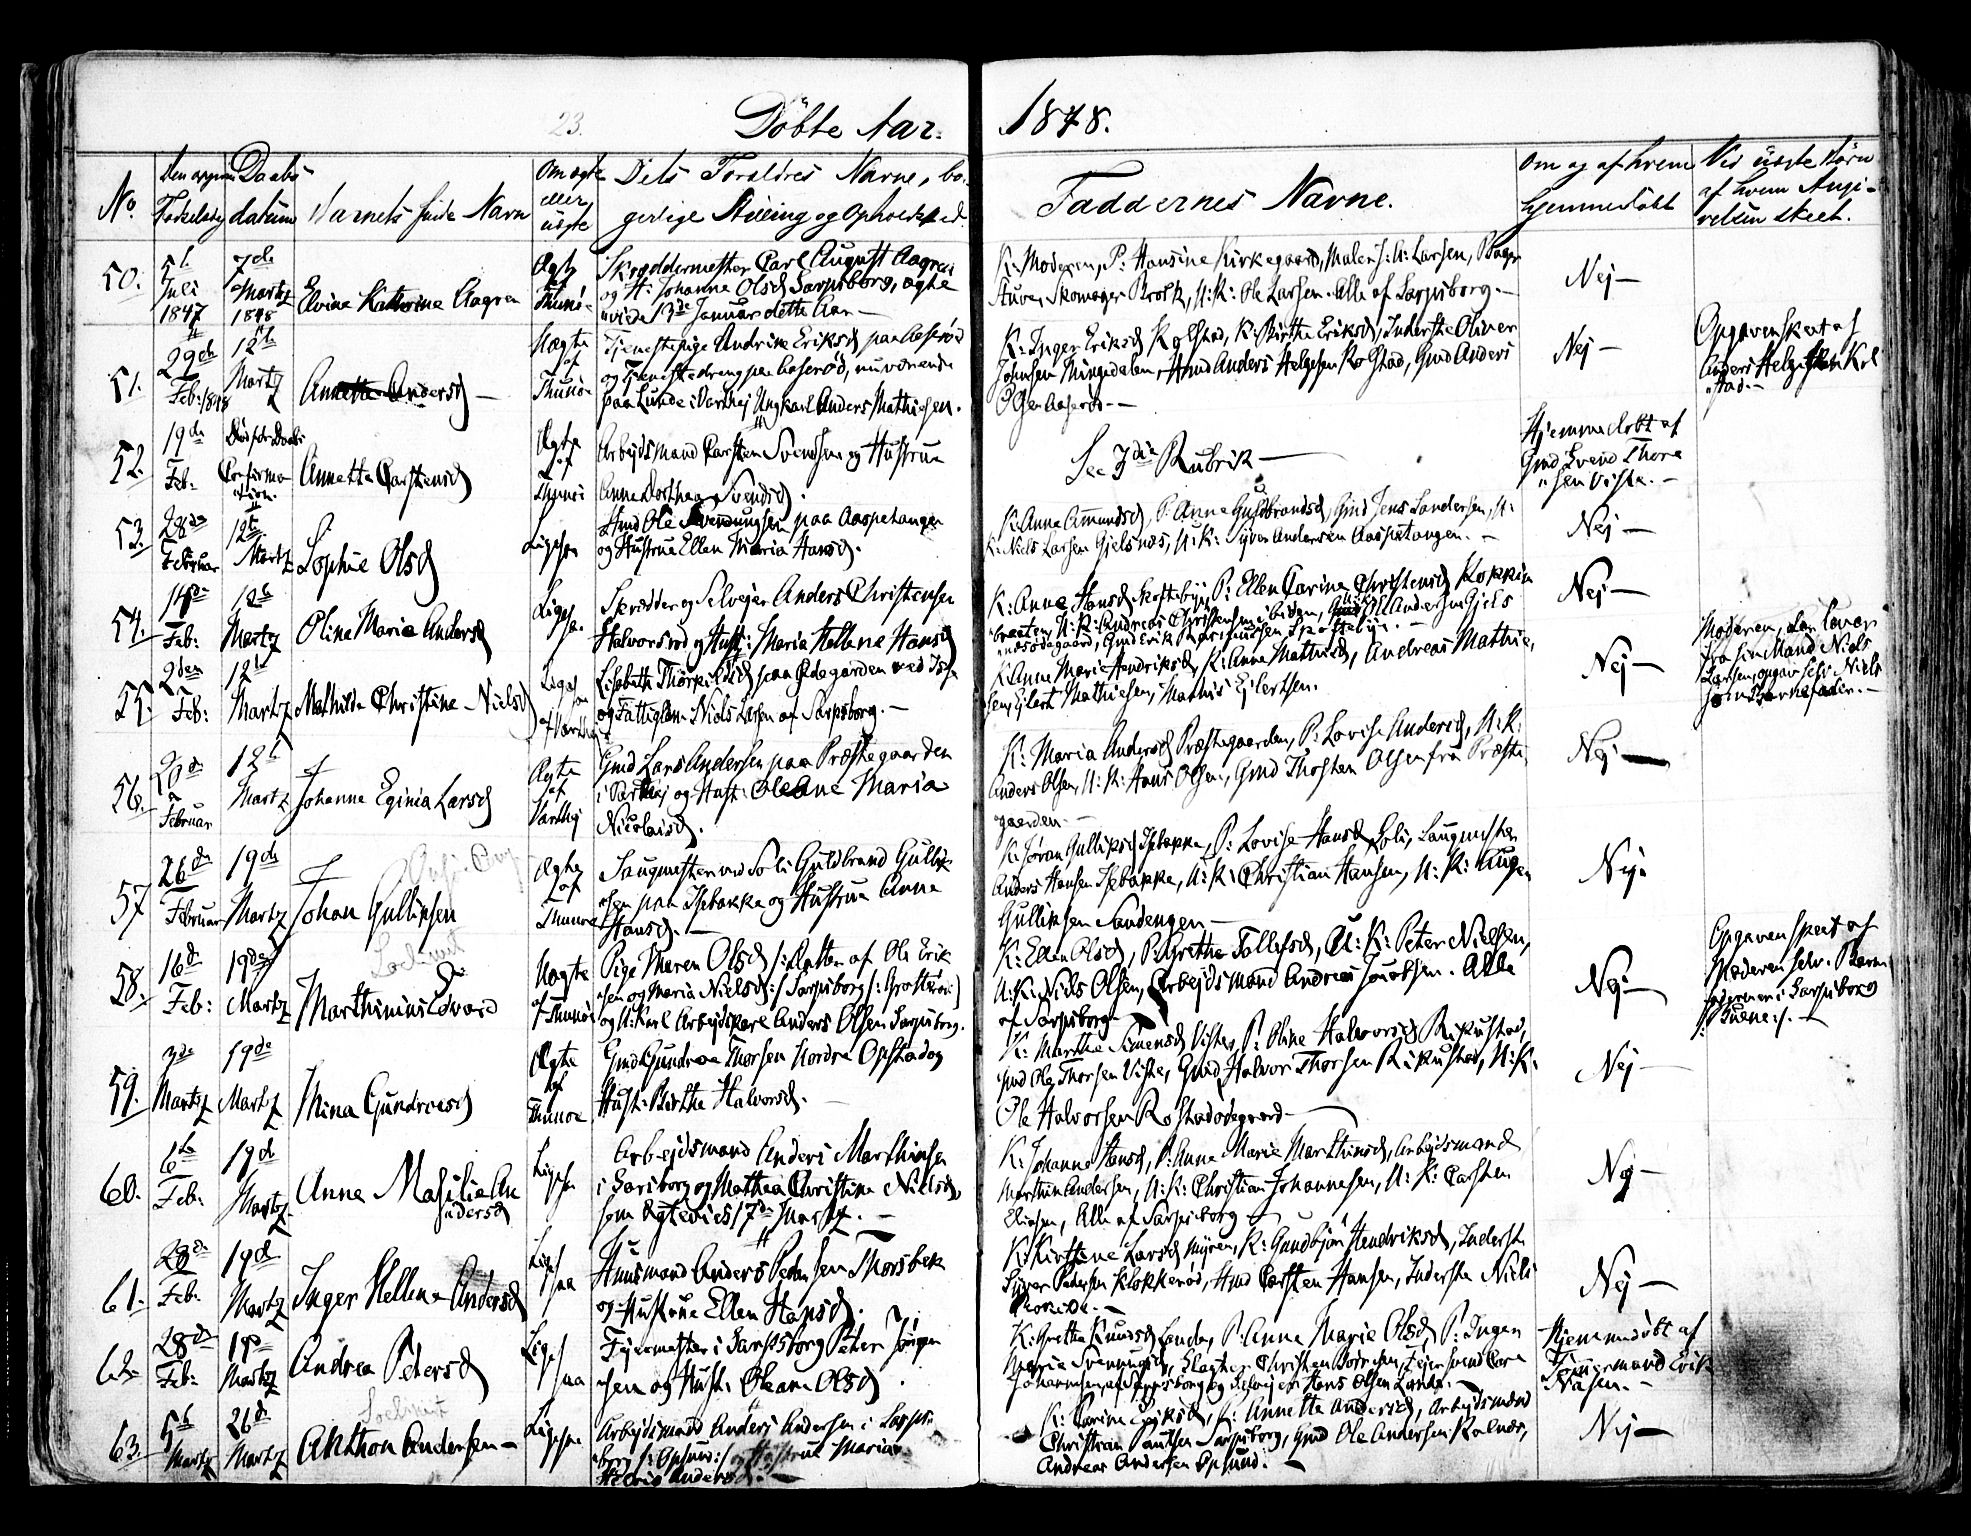 23.
Döbte Aar: 1848.
No. Fødselsdag Daabs datum Barnets fulde Navn Om ægte eller uægte Dets Forældres Navne, borgerlige Stilling og Opholdssted
Faddernes Navne. Om og af hvem hjemmedöbt Ved uægte Børn af hvem Angivelsen skeet.
50. 5t Juli 1847 7de Martz 1848 Elvine Katterine Aagren Ægte af Thunöe
Skræddermester Carl August Aagren
og H: Johanne Olsd Sarpsborg, ægte
viede 13de Januar dette Aar —
K: Moderen, P: Hansine Kirkegaard, Maler Larsen,
Skomager Brock, U: K: Ole Larsen. Alle af Sarpsborg. —
Nej —
51. 29de Feb: 1848 12te Martz Annette Andersd — Uægte af Thunöe
Tjenestepige Andrine Eriksd paa
og Tjenestedreng paa, nuværende
paa Lunde i Varthej Ungkarl Anders Mathiesen.
K: Inger Eriksd Rolstad, K: Birthe Eriksd, Inderste Oliver
Johnsen, Hmd Anders Helgesen Rolstad, Gmd Anders
Olsen —
Nej —
Opgaven skeet af
Anders Helgesen
52. 19de Feb: Död för Daabs Confirmation. Annette Carstensd Ægte af Thunöe
Arbejdsmand Carsten Svendsen og Hustrue
Anne Dorthea Svendsd.
See 3die Rubrik —
Hjemmedöbt af
Gmd Svend Thore
sen Viste. —
53. 28de Februar 12te Martz Sophie Olsd Ligesaa
Hmd Ole Svenningsen paa Aaspetangen
og Hustrue Ellen Maria Hansd.
K: Anne Amundsd, P: Anne Guldbrandsd, Gmd Jens Sandersen, U:
K: Niels Larsen Gjelsnæs, U: K: Syver Andersen Aaspetangen. —
Nej —
54. Feb: 12te Martz Oline Maria Andersd Ligesaa
Skrædder og Selvejer Anders Christensen
Halvorsröd og Hust: Maria Hellene Hansd
K: Anne Hansd Skoftebÿ, P: Ellen Carine Christensd
U: K: Andreas Christensen ibiden, Ole Andersen Gjels
næsödegaard, Gmd Erik Rasmussen Skoftebÿ. —
Nej —
55. 2den Feb: 12t Martz Mathilde Christine Nielsd Ligesaa af Varthej
Lisebeth Thorkildsd paa Ödegaarden ved
og Fattiglem Niels Larsen af Sarpsborg. —
K: Anne Marie Hendriksd, K: Anne Mathisd, Andreas Mathie,
sen, Ejlert Mathiesen, Mathis Ejlertsen.
Nej —
Moderen,
fra sin Mand Niels
Larsen, opgav selv Niels
som Barnefader. —
56. 20de Februar 12t Martz Johanne Eginia Larsd Ægte af Varthej
Gmd Lars Andersen paa Præstegaarden
i Varthej og Hust: Oleane Maria
Nicolaisd.
K: Maria Andersd Præstegaarden, P: Lovise Andersd, U: K:
Anders Olsen, U: K: Hans Olsen, Gmd Thosten Olsen fra Præste
gaarden. —
Nej —
57 26de Februar 19de Martz Johan Gulliksen Ægte af Thunöe
Saugmester ved Soli Guldbrand Gullik
sen paa Isebakke og Hustrue Anne
Hansd. —
K: Jöran Gulliksd Isebakke, P: Lovise Hansd Soli, Saugmester
Anders Hansen Isebakke, U: K: Christian Hansen, U: K: Augen
Gulliksen Sandengen —
Nej.
58. 16de Feb: 19de Martz Marthinius Edvard Uægte af Thunöe
Pige Maren Olsd /: Datter af Ole Erik
sen og Maria Nielsd :/ Sarpsborg
og U: Karl Arbejdskarl Anders Olsen Sarpsborg.
K: Ellen Olsd, P: Grethe Tollefsd, U: K: Peter Nielsen,
U: K: Niels Olsen, Arbejdsmand Andreas Jacobsen. Alle
af Sarpsborg —
Nej —
Opgaven skeet af
Moderen selv. Barne
faderen i Sarpsborg
59. 3de Martz 19de Martz Mina Gundroesd Ægte af Thunöe
Gmd Gundroe Thorsen Nordre Opstad og
Hust: Birthe Halvorsd. —
K: Marthe Simensd Viste, P: Oline Halvorsd Rikustad,
Gmd Ole Thorsen Viste, Gmd Halvor Thorsen Rikustad, U: K:
Ole Halvorsen Rostadödegaard —
Nej —
60. 6te Feb: 19de Martz Anne Mathilie Andersd Ligesaa
Arbejdsmand Anders Marthinsen
i Sarsborg og Mathea Christine Nielsd,
som Ægteviedes 17de Martz. —
K: Johanne Hansd, P: Anne Marie Marthinsd, Arbejdsmand
Marthin Andersen, U: K: Christian Johannesen, U: K: Carsten
Eliasen, Alle af Sarpsborg —
Nej —
61. 28de Feb: 19de Martz Inger Hellene Andersd Ligesaa
Huusmand Anders Pedersen Morsbek
og Hustrue Ellen Hansd.
K: Kirstine Larsd Myren, K: Gundbjör Hendriksd, Inderste
Syver Pedersen Klokkeröd, Hmd Carsten Hansen, Inderste Niels
Nej —
62. 28de Feb: 19de Martz Andrea Petersd Ligesaa
Fyermester i Sarpsborg Peter Jörgen
sen og Hust: Oleane Olsd.
K: Grethe Knudsd Lande, P: Anne Marie Olsd, P: Inger
Maria Svenningsd, Slagter Christen
Johannesen, af Sarpsborg og Selvejer Hans Olsen Lande. —
Hjemmedöbt af
Töjermand Erik
Nilsen. —
63. 5te Martz 26de Martz Anthon Andersen — Ligesaa
Arbejdsmand Anders Andersen i Sarps
borg /: Opsund :/ og Hustrue Maria
Hedvig Andersd. —
K: Carine Eriksd, K: Annette Andersd, Arbejdsmand
Christian Paulsen Sarpsborg, Gmd Ole Andersen Kalnæs,
Andreas Andersen Opsund. —
Nej —